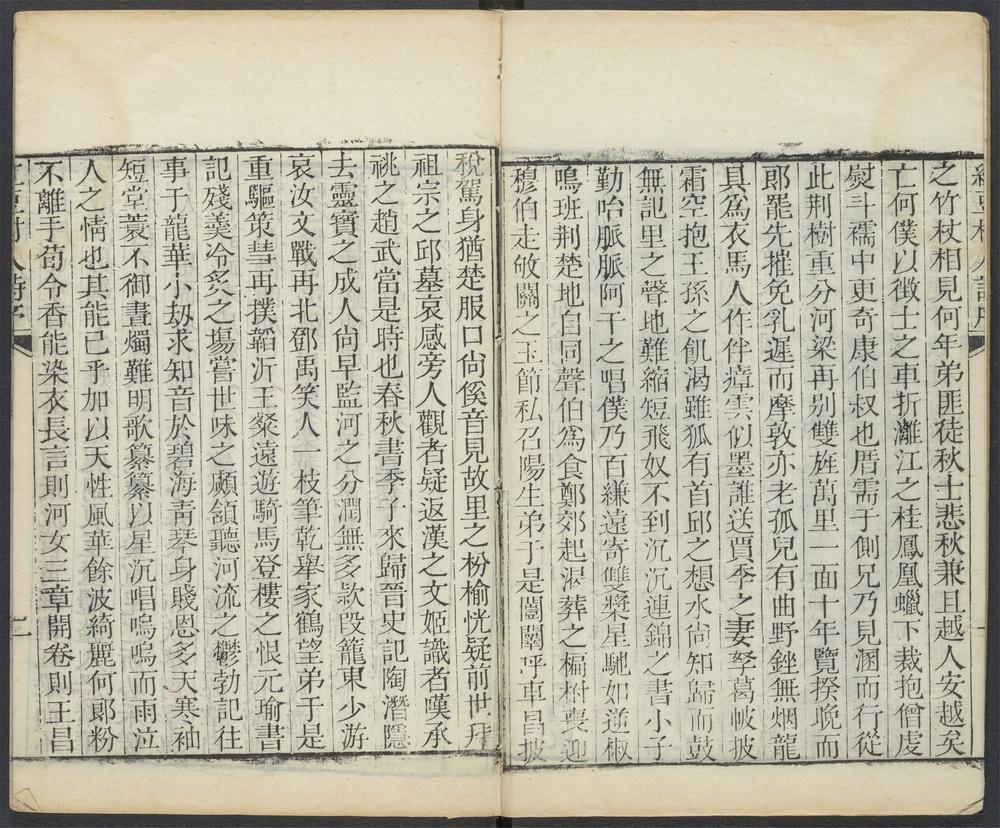 之竹杖相見何年弟匪徒秋士悲秋兼且越人安越矣
亡何僕以徴士之車折灕江之桂鳳凰蠟下裁抱僧虔
熨斗襦中更奇康伯叔也厝需于側兄乃見溷而行從
此荆樹重分河梁再别雙旌萬里一面十年覽揆晚而
郎罷先摧免乳遲而摩敦亦老孤兒有曲野銼無烟龍
具為衣馬人作伴瘴雲似墨誰送賈季之妻孥葛帔披
霜空抱王孫之飢渴雖狐有首邱之想水尙知歸而鼓
無記里之聲地難縮短飛奴不到沉沉連錦之書小子
勤咍脈脈阿干之唱僕乃百縑遠寄雙槳星馳如逆椒
鳴班荆楚地自同聲伯爲食鄭郊起渴葬之楄柎喪迎
穆伯走敂關之玉節私召陽生弟于是闔闢呼車昌披
稅駕身猶楚服口尙傒音見故里之枌榆恍疑前世拜
祖宗之邱墓哀感旁人觀者疑返漢之文姬識者嘆承
祧之趙武當是時也春秋書季子來歸晉史記陶潛隱
去靈寶之成人尙早監河之分潤無多款段籠東少游
哀汝文戰再北鄧禹笑人一枝筆乾舉家鶴望弟于是
重驅策彗再撲韜沂王粲遠遊騎馬登樓之恨元瑜書
記殘羹冷炙之場嘗世味之顑頷聽河流之鬱勃記往
事于龍華小劫求知音於碧海青琴身賤恩多天寒袖
短堂蓑不御晝燭難明歌纂纂以星沉唱嗚嗚而雨泣
人之情也其能已乎加以天性風華餘波綺麗何郎粉
不離手荀令香能染衣長言則河女三章開卷則王昌